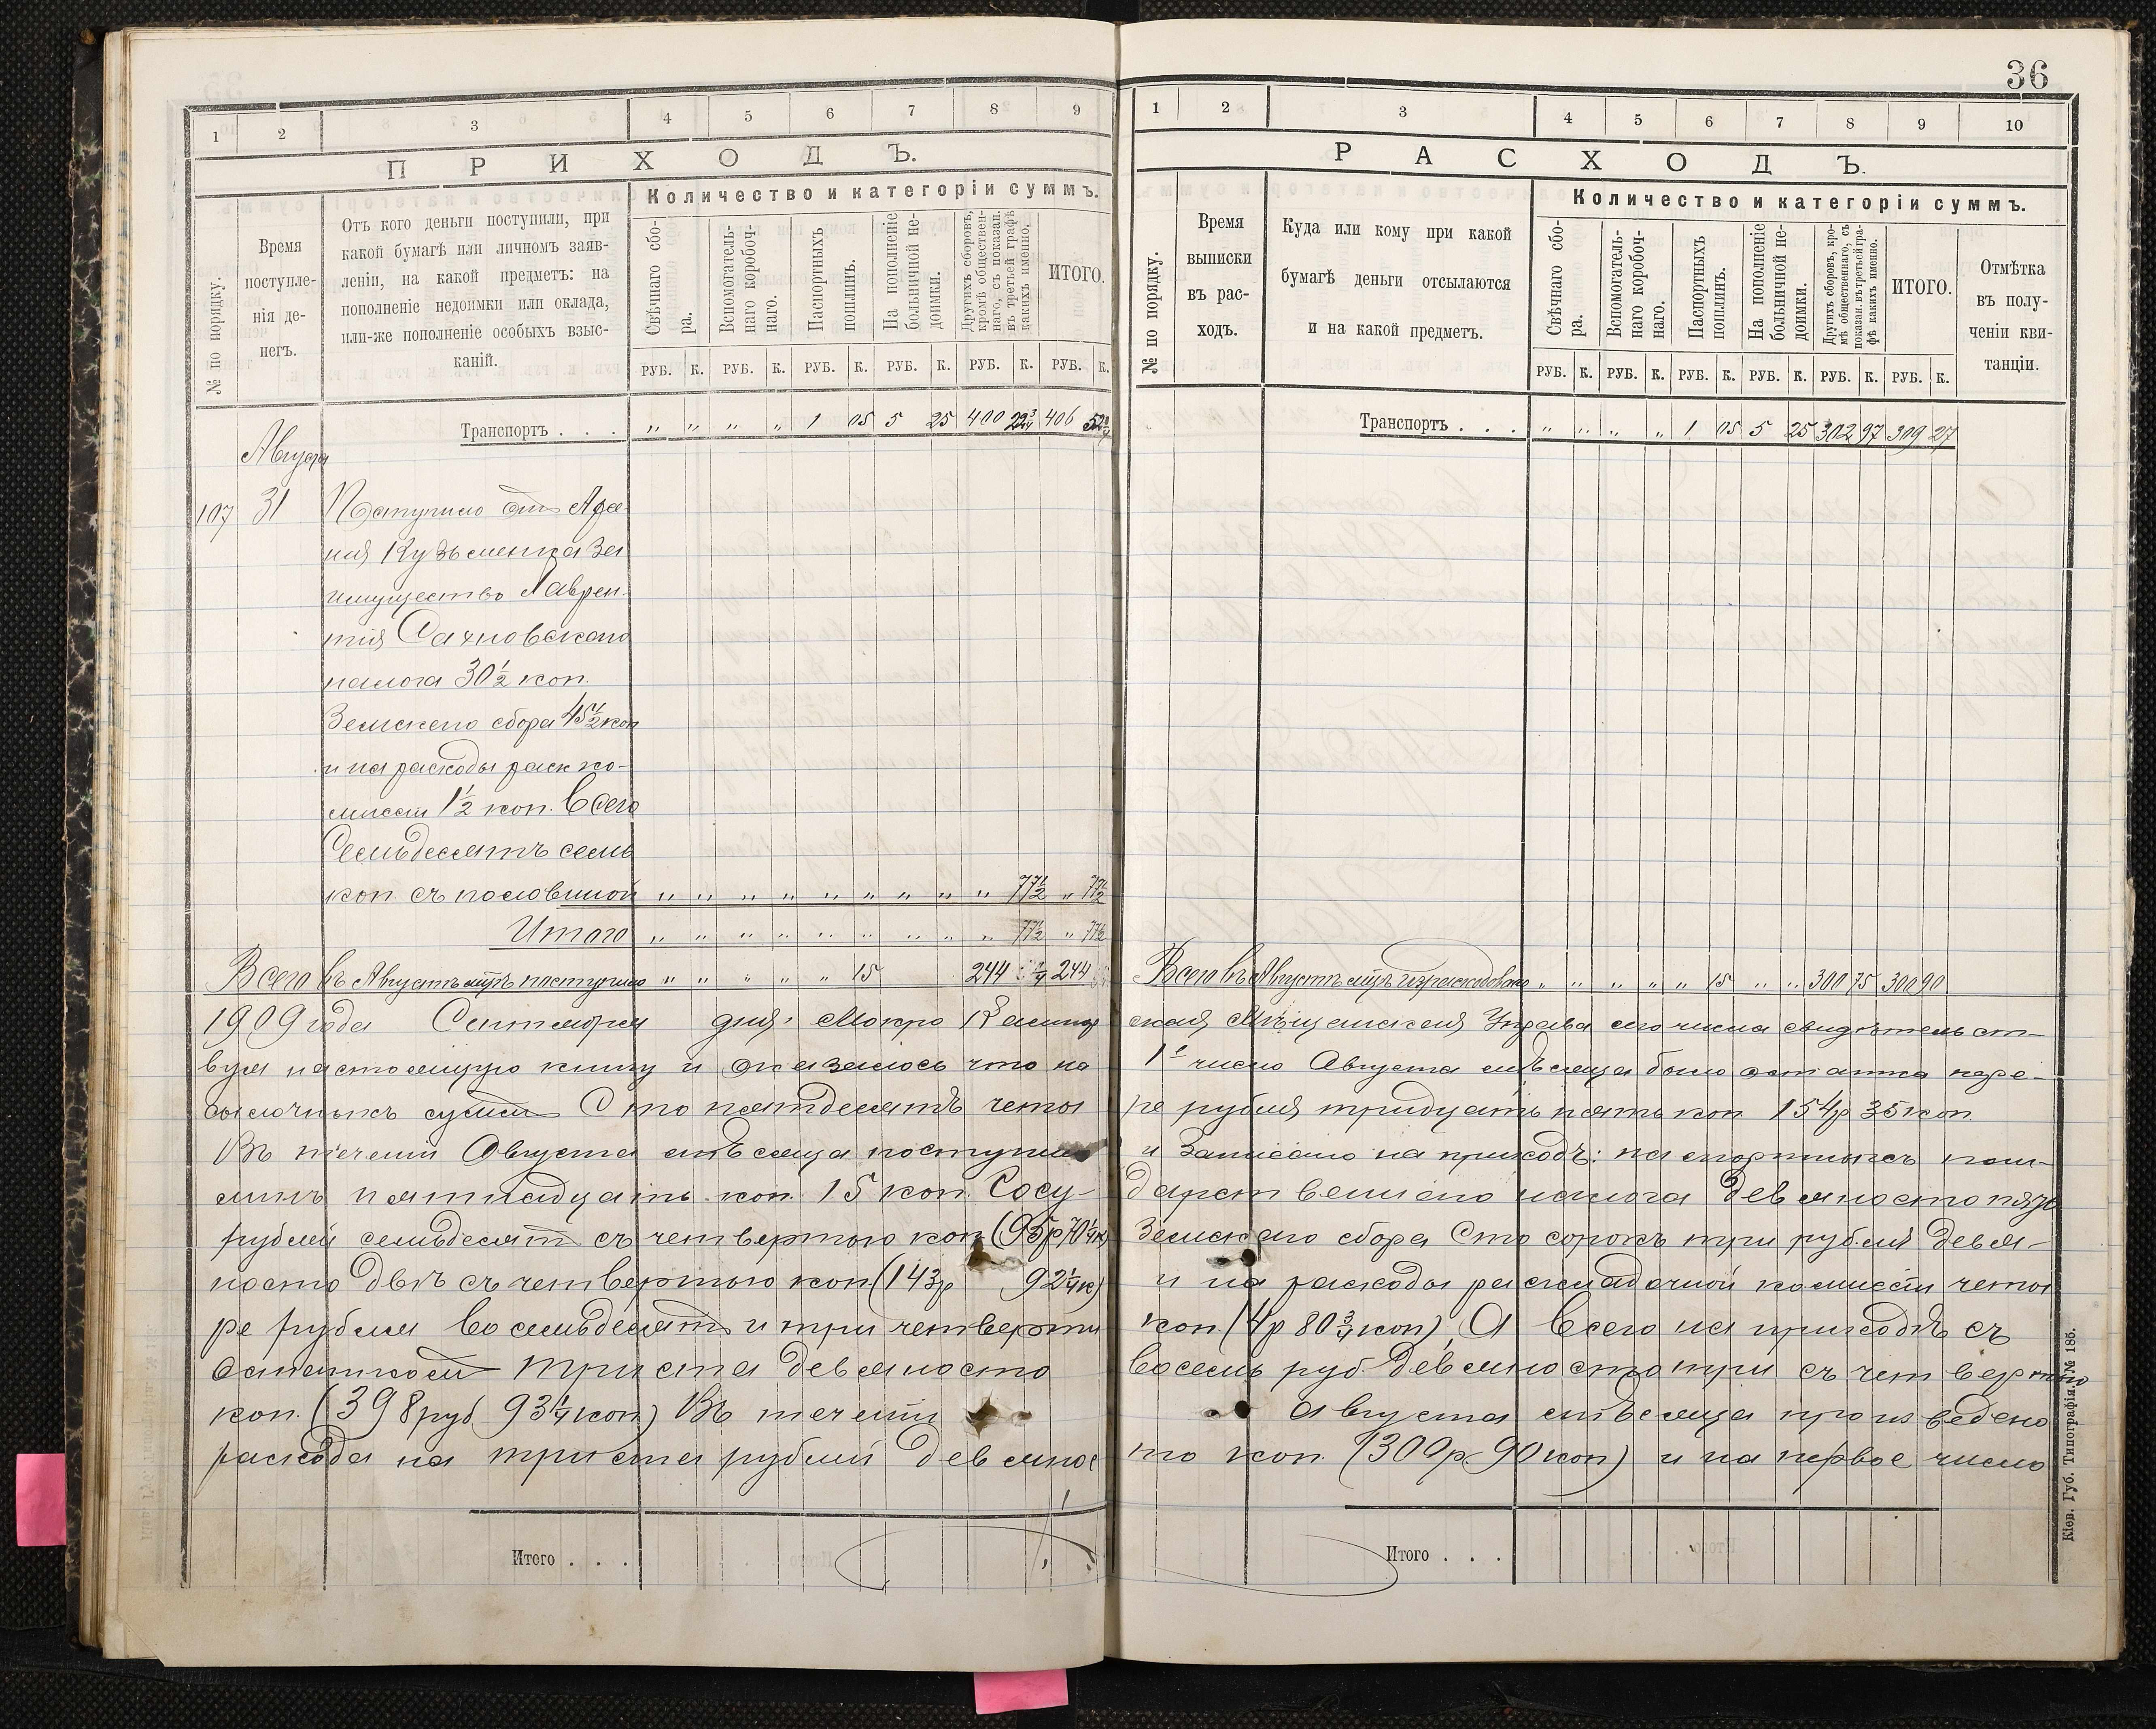 36
1 2 3 4 5 6 7 8 9
ПРИХОДЪ.
№ по порядку.
Время поступле-
нія де-
негъ.
Отъ кого деньги поступили, при
какой бумагѣ или личномъ заяв-
леніи, на какой предметъ: на
пополненіе недоимки или оклада,
или-же пополненіе особыхъ взыс-
каній.
Количество и категоріи суммъ.
Свѣчнаго сбо-
ра.
Вспомогатель-
наго коробоч-
наго.
Паспортныхъ
пошлинъ.
На пополненіе
больничной не-
доимки.
Другихъ сборовъ,
кромѣ обществен-
наго, съ показан.
въ третьей графѣ
какихъ именно.
ИТОГО.
РУБ. К. РУБ. К. РУБ. К. РУБ. К. РУБ. К. РУБ. К.
Транспортъ . . . " " " " 1 05 5 25 400 22 3/4 406 52 3/4
Августа
107 31 Поступило отъ
Кузьменка за
имущество Лаврен-
тія Сахновскаго
налога 30 1/2 коп.
Земскаго сбора 45 1/2 коп
и на расходы раск. ко-
миссіи 1 1/2 коп. Всего
Семьдесятъ семь
коп. съ половиной " " " " " " " " " 77 1/2 " 77 1/2
Итого " " " " " " " " " 77 1/2 " 77 1/2
Всего въ Августѣ мцѣ поступило " " " " " 15 244 244
1 2 3 4 5 6 7 8 9 10
РАСХОДЪ.
№ по порядку.
Время
выписки
въ рас-
ходъ.
Куда или кому при какой
бумагѣ деньги отсылаются
и на какой предметъ.
Количество и категоріи суммъ.
Свѣчнаго сбо-
ра.
Вспомогатель-
наго коробоч-
наго.
Паспортныхъ
пошлинъ.
На пополненіе
больничной не-
доимки.
Другихъ сборовъ, кро-
мѣ общественнаго, съ
показан. въ третьей гра-
фѣ какихъ именно.
ИТОГО.
Отмѣтка
въ полу-
ченіи кви-
танціи.
РУБ. К. РУБ. К. РУБ. К. РУБ. К. РУБ. К. РУБ. К.
Транспортъ . . . " " " " 1 05 5 25 302 97 309 27
Всего въ Августѣ мцѣ израсходовано " " " " " 15 " " 300 75 300 90
1909 года Сентября дня. Мокро Калигорская Мѣщанская Управа сего числа свидѣтельст-
вуя настоящую книгу и оказалось что на 1е число Августа мѣсяца было остатка пере-
сылочныхъ суммъ Сто пятдесятъ четыре рубля тридцать пять коп 154р 35 коп
Въ теченіи Августа мѣсяца поступило и Записано на приходъ: паспортныхъ пош-
линъ пятнадцать коп. 15 коп. Государственнаго налога Девяносто пять
рублей семьдесят съ четвертью коп (95р 70 1/4 к) Земскаго сбора Сто сорокъ три рубля девя-
носто двѣ съ четвертью коп (143р 92 1/4 к) и на расходы раскладочной комиссіи четы
ре рубля восемьдесят и три четверти коп (4р 80 3/4 коп), А всего на приходѣ съ
остаткомъ триста девяносто восемь руб. Девяносто три съ четвертью
коп. (398 руб 93 1/4 коп) Въ теченіи Августа мѣсяца произведено
расхода на триста рублей девяносто коп. (300р 90 коп) и на первое число
Итого . . .
Итого . . .
Кіев. Губ. Типографія. № 186.